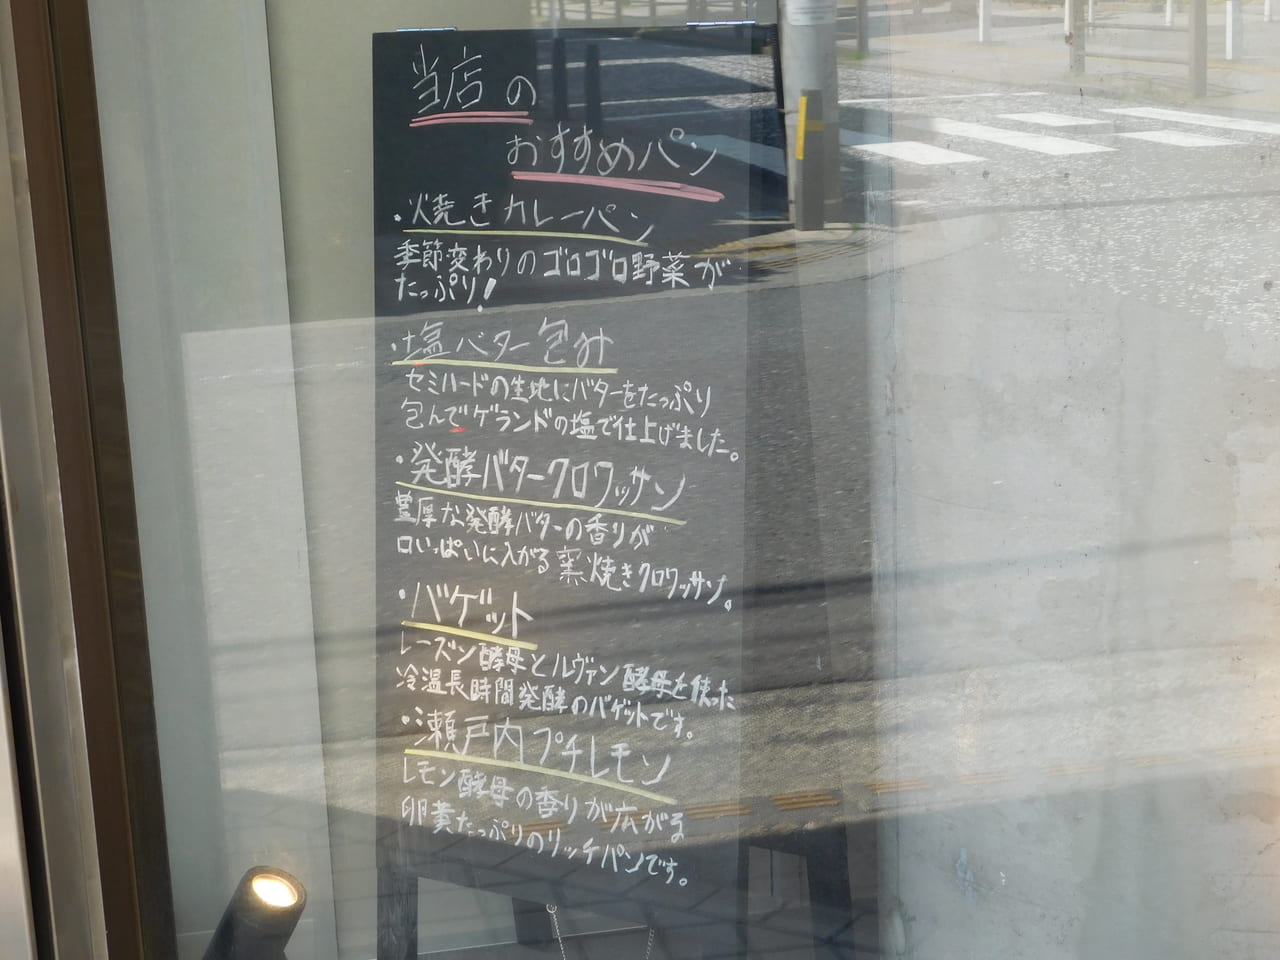 当店の
おすすめパン
・焼きカレーパン
季節変わりのゴロゴロ野菜が
たっぷり!
・塩バター包み
セミハードの生地にバターをたっぷり
包んでゲランドの塩で仕上げました。
・発酵バタークロワッサン
豊厚な発酵バターの香りが
口いっぱいに入がる窯焼きクロワッサン。
・バゲット
レーズン酵母とルヴァン酵母を使った
冷温長時間発酵のバゲットです。
・瀬戸内プチレモン
レモン酵母の香りが広がる
卵黄たっぷりのリッチパンです。